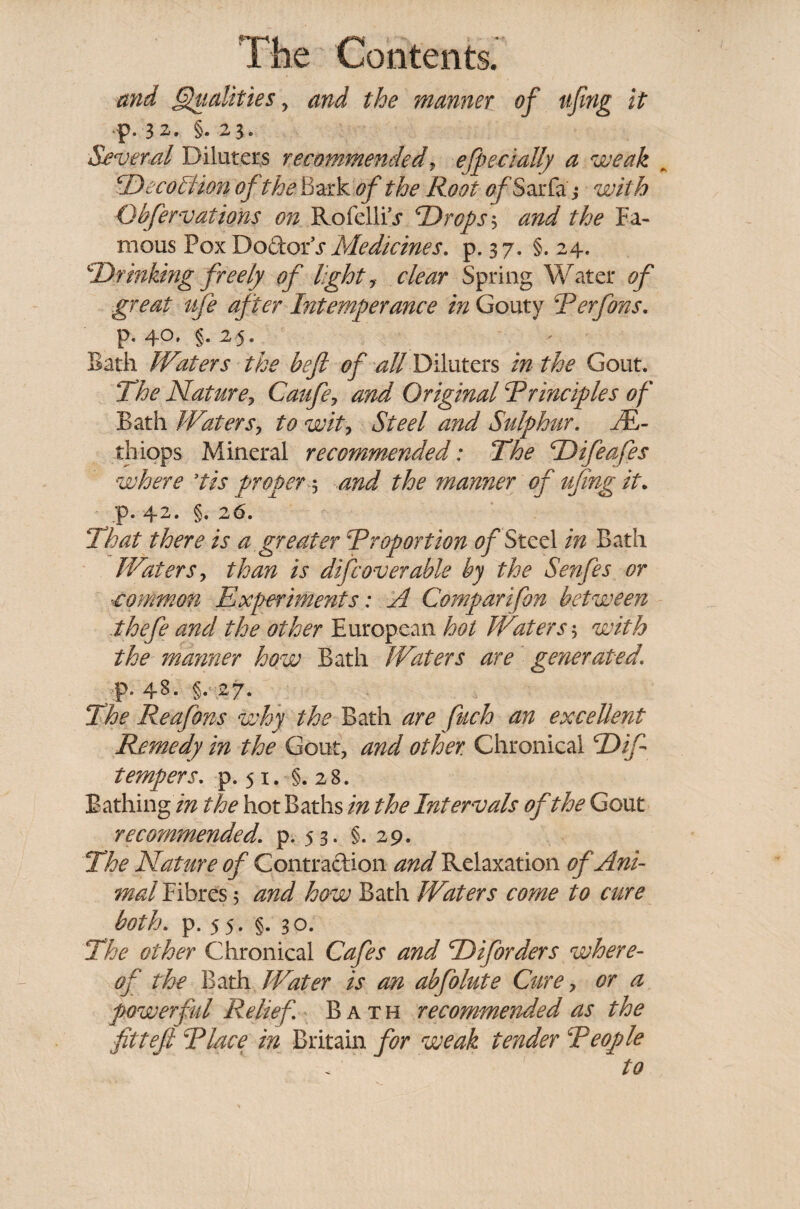 The Contents.
and Qualities, and the manner of uſing it
p. 32. §. 23.
Several Diluters recommended, eſpecially a weak
Decoction of the Bark of the Root of Sarſa; with
Obſervations on Roſelli's Drops; and the Fa-
mous Pox Doctor's Medicines. p. 37. §. 24.
Drinking freely of light, clear Spring Water of
great uſe after Intemperance in Gouty Perſons.
p. 40. §. 25.
Bath Waters the beſt of all Diluters in the Gout.
The Nature, Cauſe, and Original Principles of
Bath Waters, to wit, Steel and Sulphur. Æ-
thiops Mineral recommended: The Diſeaſes
where 'tis proper; and the manner of uſing it.
p. 42. §. 26.
That there is a greater Proportion of Steel in Bath
Waters, than is diſcoverable by the Senſes or
common Experiments: A Compariſon between
theſe and the other European hot Waters; with
the manner how Bath Waters are generated.
p. 48. §. 27.
The Reaſons why the Bath are ſuch an excellent
Remedy in the Gout, and other Chronical Diſ-
tempers. p. 51. §. 28.
Bathing in the hot Baths in the Intervals of the Gout
recommended. p. 53. §. 29.
The Nature of Contraction and Relaxation of Ani-
mal Fibres; and how Bath Waters come to cure
both. p. 55. §. 30.
The other Chronical Caſes and Diſorders where-
of the Bath Water is an abſolute Cure, or a
powerful Relief. BATH recommended as the
fitteſt Place in Britain for weak tender People
to